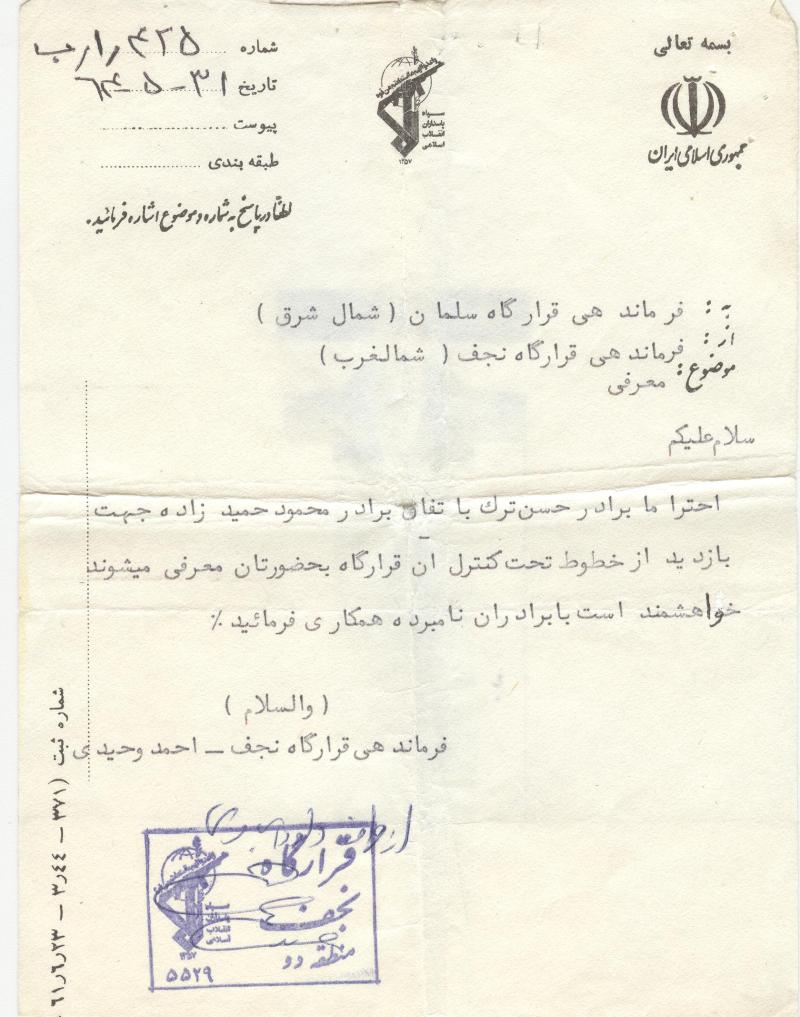 بسمه تعالی
جمهوری اسلامی ایران
سپاه
پاسداران
انقلاب
اسلامی
۱۳۵۷
شماره ۴۲۵
تاریخ ۳۱-۵-۶۴
پیوست
طبقه بندی
لطفاً در پاسخ به شماره و موضوع اشاره فرمائید.
به : فرماندهی قرارگاه سلمان (شمال شرق)
از : فرماندهی قرارگاه نجف (شمالغرب)
موضوع : معرفی
سلام علیکم
احتراما برادر حسن ترك با تفاق برادر محمود حمید زاده جهت
بازدید از خطوط تحت کنترل ان قرارگاه بحضورتان معرفی میشوند
خواهشمند است بابرادران نامبرده همکاری فرمائید٪
(والسلام)
فرماندهی قرارگاه نجف — احمد وحیدی
از طرف
قرارگاه
نجف
منطقه دو
سپاه
پاسداران
انقلاب
اسلامی
۱۳۵۷
۵۵۲۹
شماره ثبت (۳۷۱ — ۳٫۴۴ — ۶۱٫۶٫۲۳